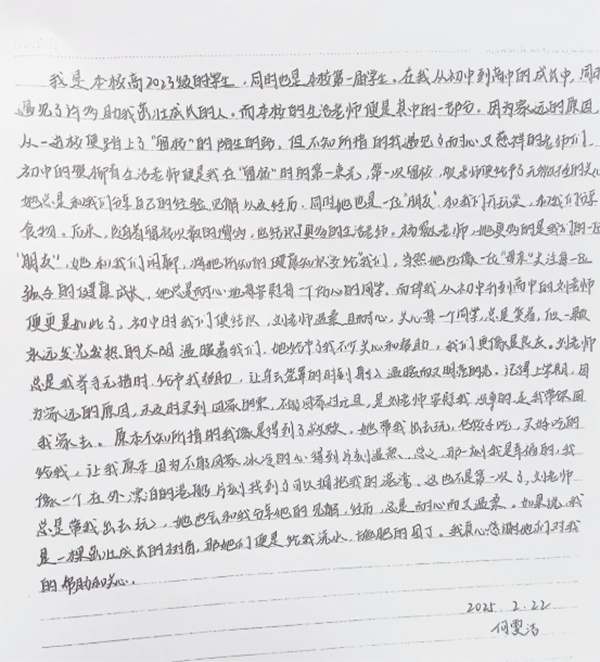 我是本校高2023级的学生，同时也是本校第一届学生。在我从初中到高中的成长中，同
遇见了许多助我茁壮成长的人。而本校的生活老师便是其中的一部分。因为家远的原因
从一进校便踏上了“留校”的陌生的路，但不知所措的我遇见了而耐心又慈祥的老师们。
初中的 生活老师便是我在“留校”时的第一束光，第一次留校， 老师便给予了无微不至的关心
她总是和我们分享自己的经验见解以及经历，同时她也是一位“朋友”，和我们开玩笑，和我们分享
食物。后来，随着留校次数的增多，也结识了更多的生活老师。杨 老师，她更多的是我们的一位
“朋友”，她和我们闲聊，将她所知的健康知识予给我们，当然她也像一位“母亲”关注每一位
孩子的健康成长，她总是耐心地安慰每一个伤心的同学。而伴我从初中升到高中的刘老师
便更是如此了，初中时我们便结识，刘老师温柔且耐心，关心每一个同学，总是笑着，似一颗
永远发光发热的太阳温暖着我们，她给予了我不少关心和帮助，我们更像是良友。刘老师
总是我举手无措时，给予我帮助，让乌云笼罩的时刻射入温暖而又明亮的光。记得上学期，因
为家远的原因，未及时买到回家的票，不能回家过元旦，是刘老师安慰我 我带你回
我家去。原本不知所措的我像是得到了救赎。她带我出去玩，给我好吃，买好吃的
给我，让我原本因为不能回家冰冷的心得到片刻温热。总之，那一刻我是幸福的，我
像一个在外漂泊的港船片刻找到了可以拥抱我的港湾。这也不是第一次了，刘老师
总是带我出去玩，她也会和我分享他的见解，经历，总是耐心而又温柔。如果说，我
是一棵茁壮成长的树苗，那她们便是给我浇水、施肥的园丁。我真心感谢她们对我
的帮助和关心。
2025．2.22
何雯洁